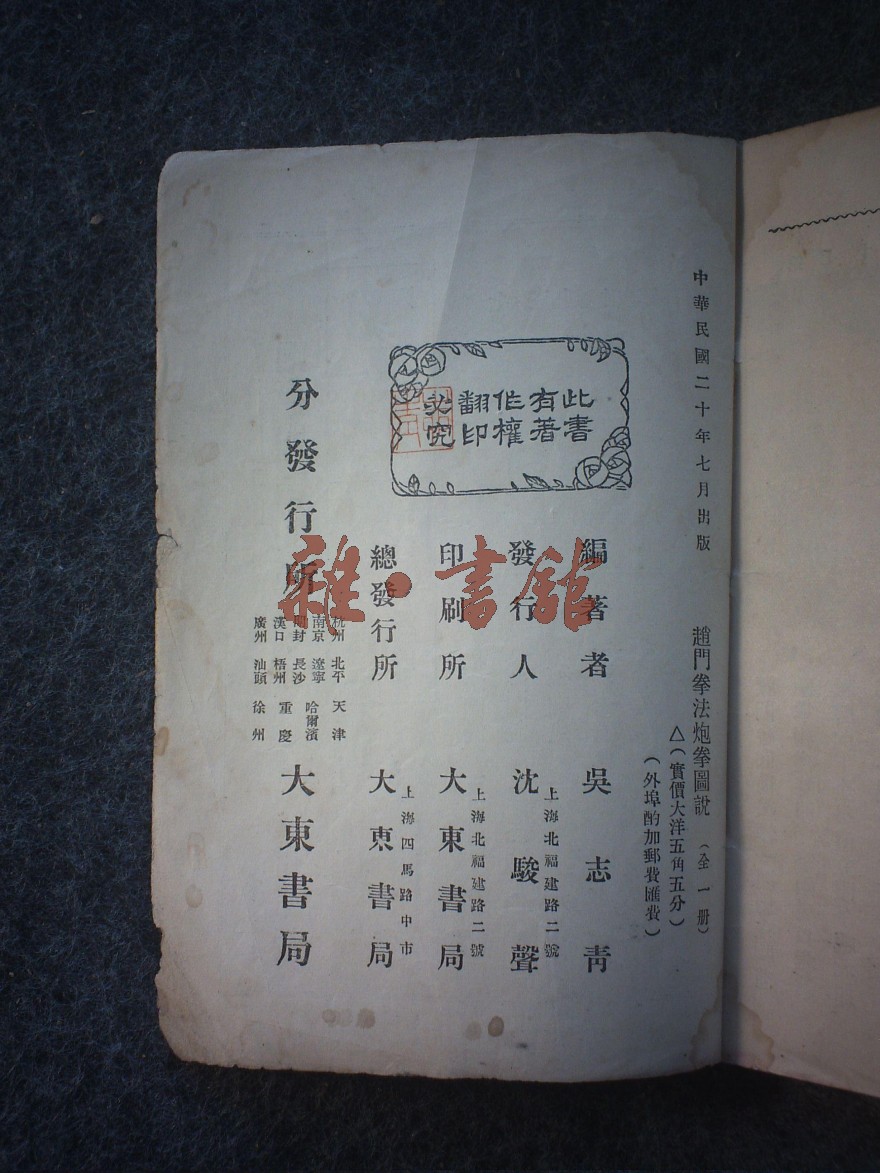 中華民國二十年七月出版
趙門拳法炮拳圖說（全一册）
△（實價大洋五角五分）
（外埠酌加郵費匯費）
此書
有著
作權
翻印
必究
編著者 吳志青
發行人 沈駿聲
上海北福建路二號
印刷所 大東書局
上海北福建路二號
總發行所 大東書局
上海四馬路中市
分發行所 大東書局
杭州 北平 天津
南京 遼寧 哈爾濱
開封 長沙
漢口 梧州 重慶
廣州 汕頭 徐州
雜·書館